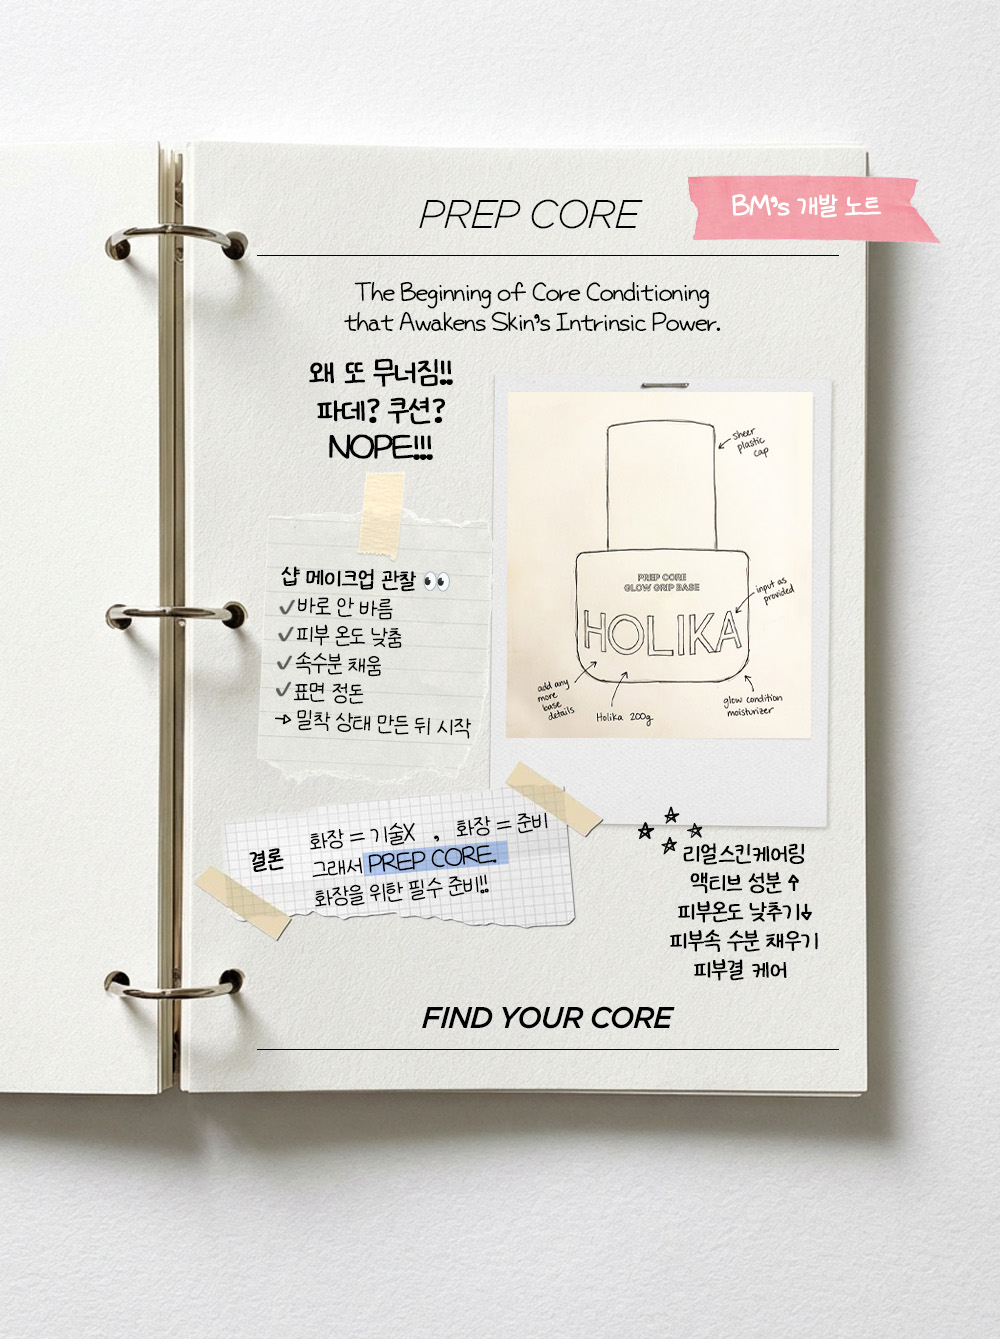 PREP CORE
BM's 개발 노트
The Beginning of Core Conditioning
that Awakens Skin's Intrinsic Power.
왜 또 무너짐!!
파데? 쿠션?
NOPE!!!
샵 메이크업 관찰 👀
✓바로 안 바름
✓피부 온도 낮춤
✓속수분 채움
✓표면 정돈
→ 밀착 상태 만든 뒤 시작
sheer
plastic
cap
PREP CORE
GLOW GRIP BASE
HOLIKA
input as
provided
add any
more
base
details
Holika 200g
glow condition
moisturizer
결론
화장 = 기술X , 화장 = 준비
그래서 PREP CORE.
화장을 위한 필수 준비!!
리얼스킨케어링
액티브 성분 ↑
피부온도 낮추기↓
피부속 수분 채우기
피부결 케어
FIND YOUR CORE